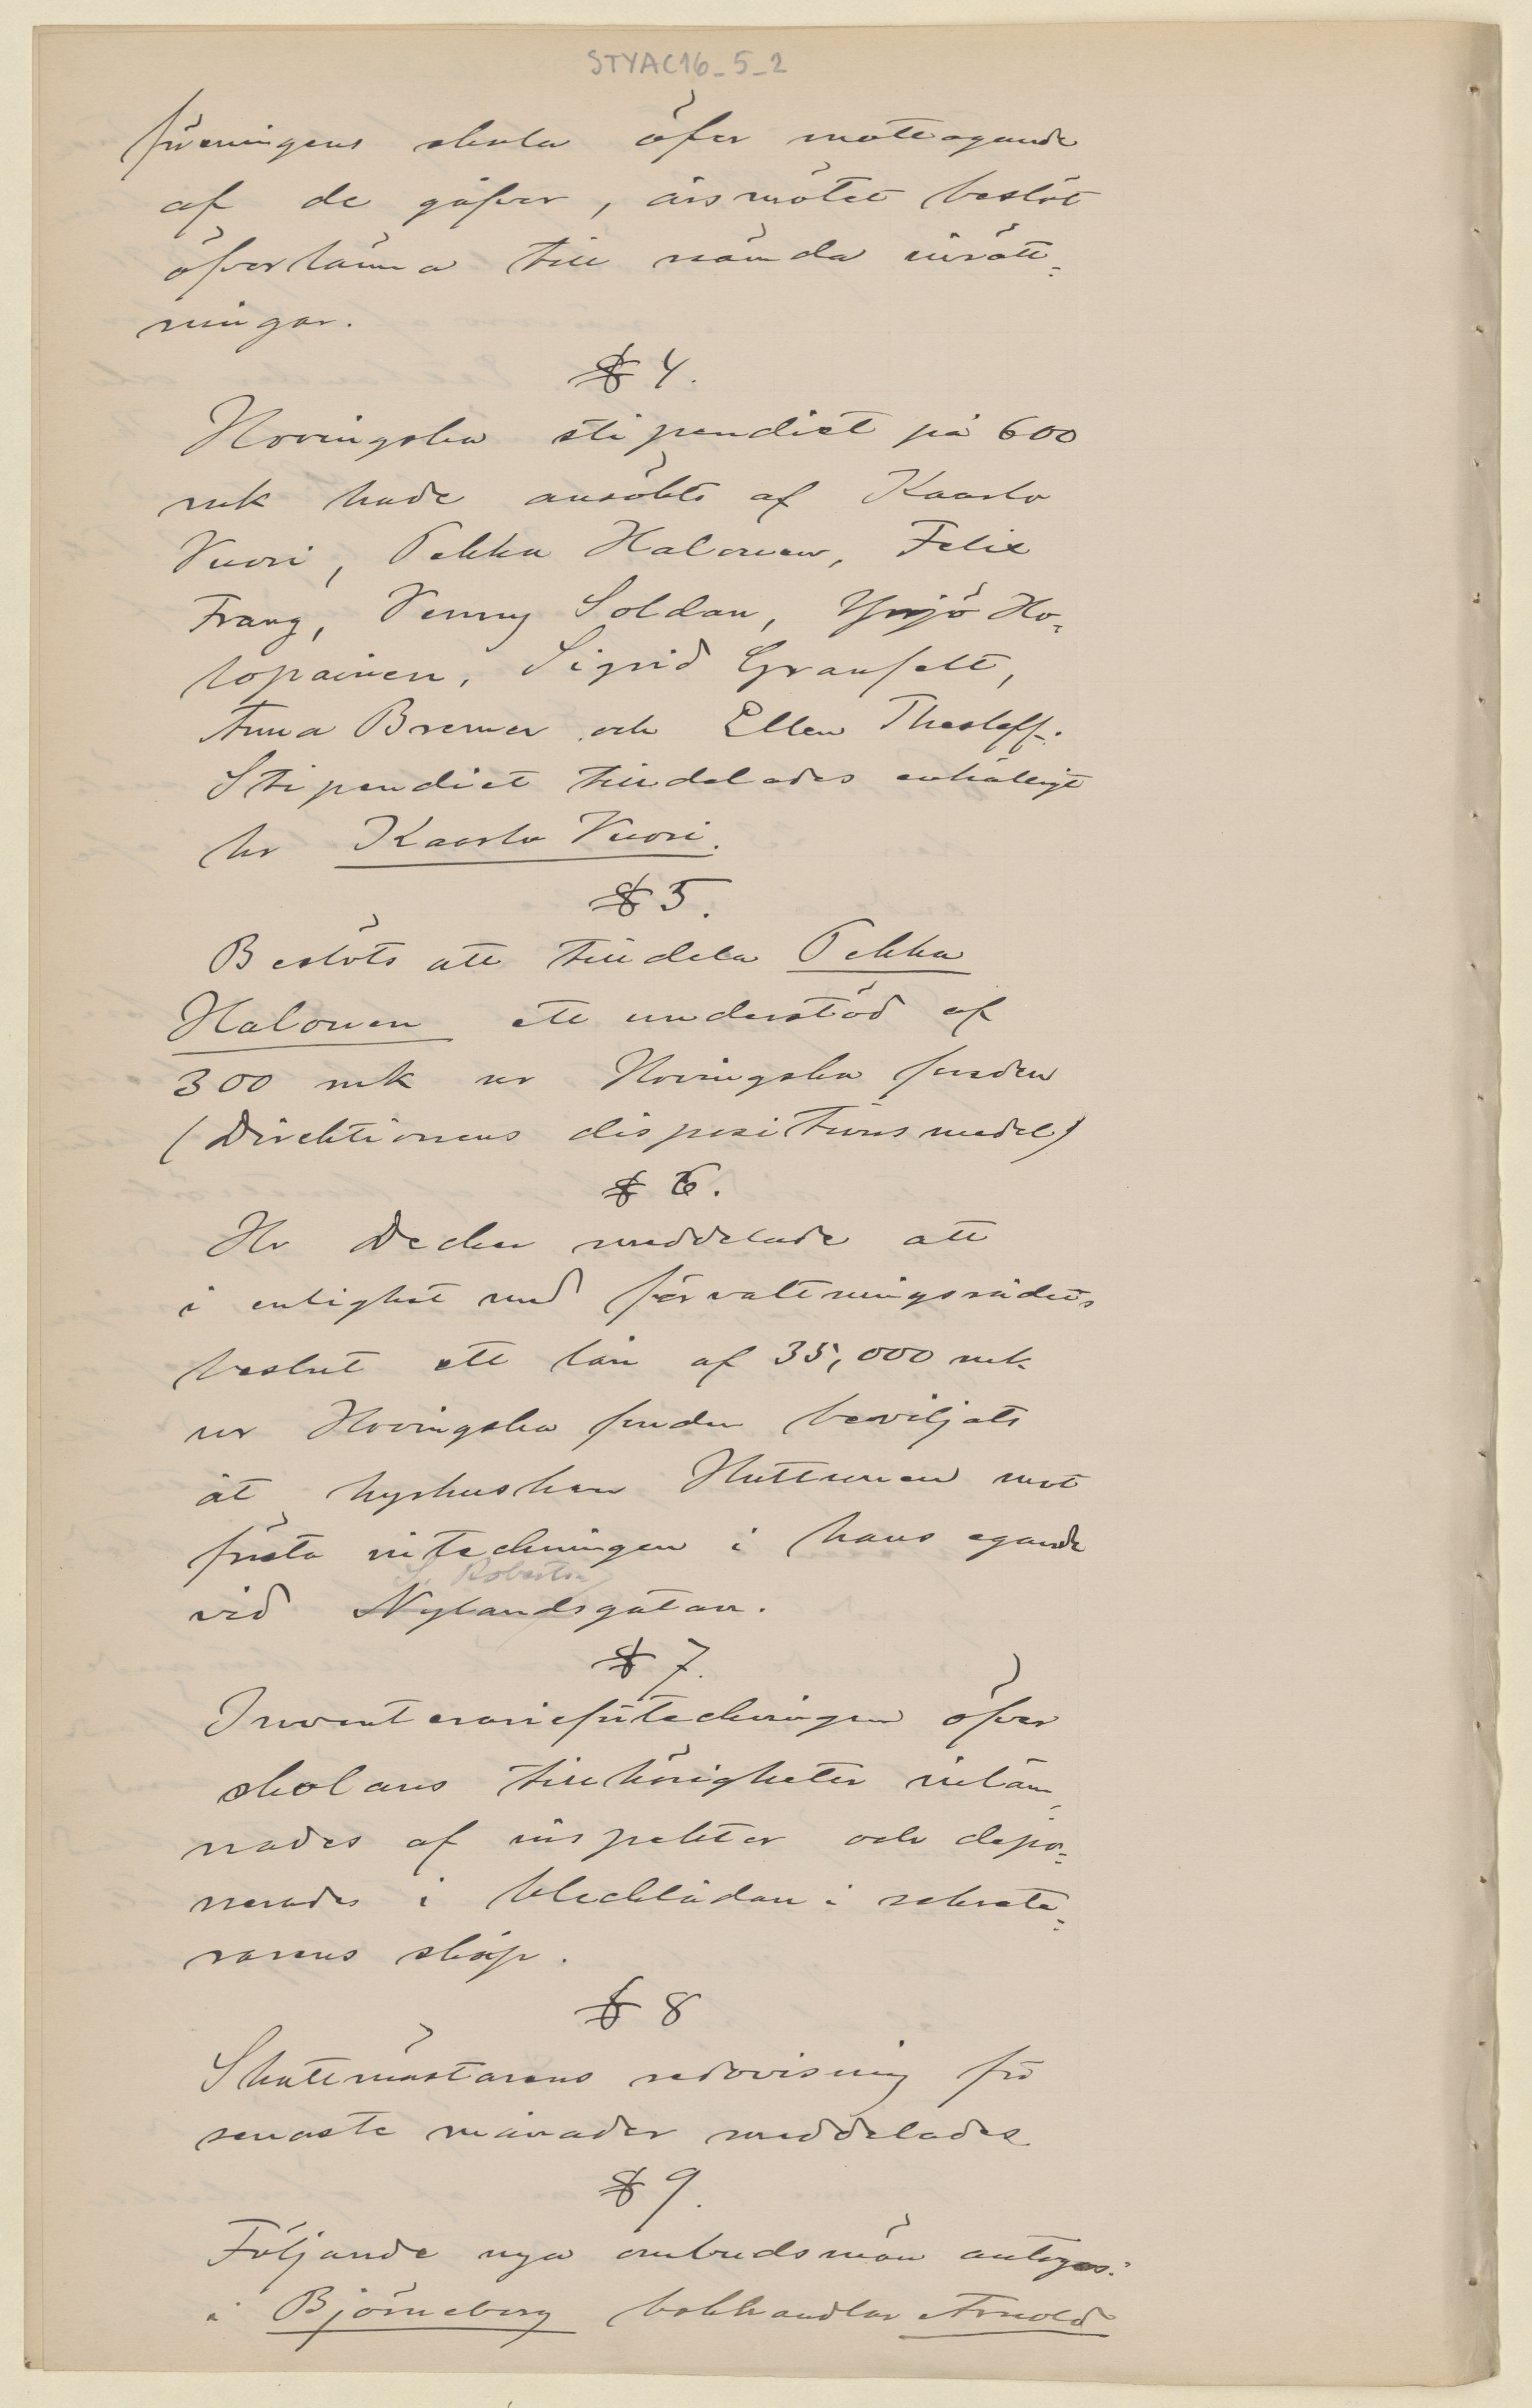 STYAC16_5_2
föreningens skola öfver mottagande
af de gåfvor, årsmötet beslöt
öfverlämna till nämda inrätt-
ningar.
§ 4.
Hovingska stipendiet på 600
mk hade ansökts af Kaarlo
Vuori, Pekka Halonen, Felix
Frang, Venny Soldan, Yrjö Ho-
lopainen, Sigrid Granfelt,
Anna Bremer och Ellen Thesleff.
Stipendiet tilldelades enhälligt
hr Kaarlo Vuori.
§ 5.
Beslöts att tilldela Pekka
Halonen ett understöd af
300 mk ur Hovingska fonden
(Direktionens dispositionsmedel)
§ 6.
Hr Decker meddelade att
i enlighet med förvaltningsrådets
beslut ett lån af 35,000 mk
ur Hovingska fonden beviljats
åt hyrkusken Huttunen mot
första inteckningen i hans egande
S. Roberts
vid Nylandsgatan.
§ 7.
Inventarieförteckningen öfver
skolans tillhörigheter inläm-
nades af inspektor och depo-
nerades i blecklådan i sekrete-
rarens skåp.
§ 8
Skattmästarens redovisning för
senaste månader meddelades
§ 9.
Följande nya ombudsmän antogos:
i Björneborg bokhandlar Arnold